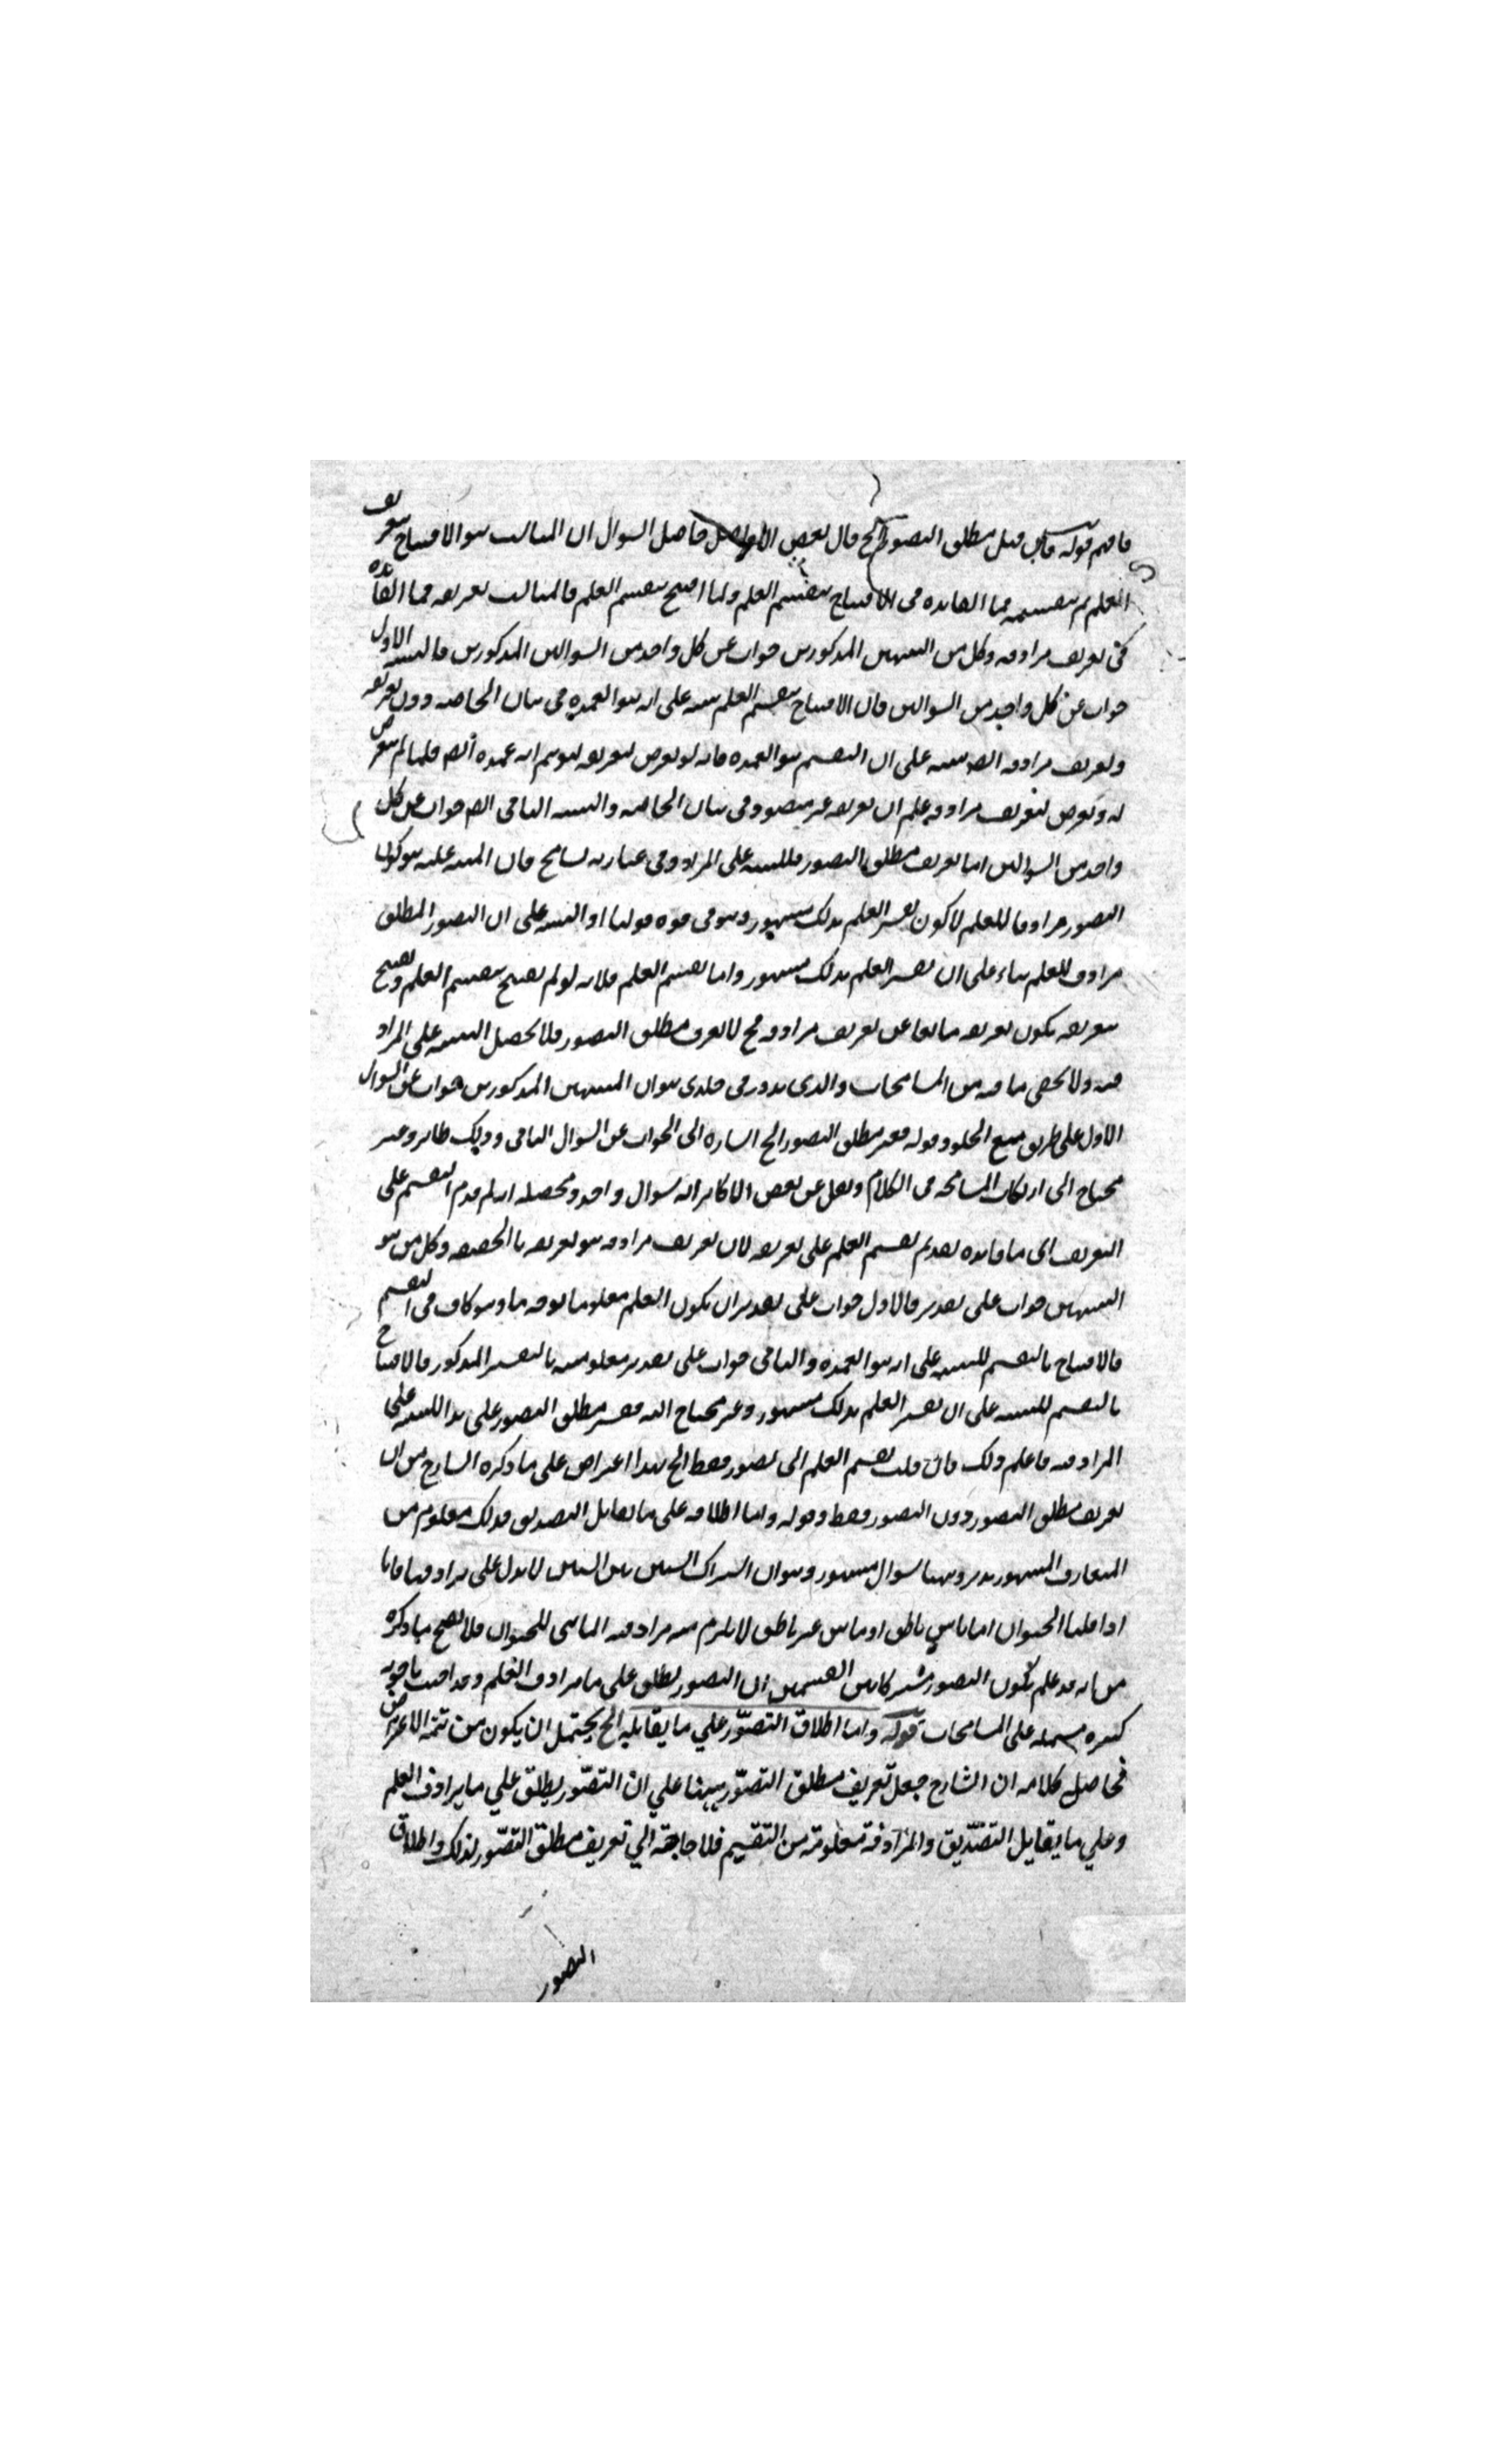 فافهم قوله فان قيل مطلق التصور الخ قال بعض الأفاضل حاصل السوال ان المناسب هو الافتتاح بتعريف
العلم ثم بتقسيمه فما الفائده فى الافتتاح بتقسيم العلم ولما افتتح بتقسيم العلم فالمناسب تعريفه فما الفائده
فى تعريف مرادفه وكل من التنبيهين المذكورين جواب عن كل واحد من السوالين المذكورين فالتنبيه الاول
جواب عن كل واحد من السوالين فان الافتتاح بتقسيم العلم تنبيه على انه هو العمده فى بيان الحاجه دون تعريفه
وتعريف مرادفه ايضا تنبيه على ان التقسيم هو العمده فانه لو تعرض لتعريفه لتوهم انه عمده ايضا فلما لم يتعرض
له وتعرض لتعريف مرادفه علم ان تعريفه غير مقصود فى بيان الحاجه والتنبيه الثانى ايضا جواب عن كل
واحد من السوالين اما تعريف مطلق التصور فللتنبيه على المراد وفى عبارته تسامح فان المنبه عليه هو كون
التصور مرادفا للعلم لا كون تفسير العلم بذلك مشهور وهو فى قوه قولنا او التنبيه على ان التصور المطلق
مرادف للعلم بناء على ان تفسير العلم بذلك مشهور واما تقسيم العلم فلانه لو لم يفتتح بتقسيم العلم ويفتتح
بتعريفه يكون تعريفه مانعا عن تعريف مرادفه فح لا يعرف مطلق التصور فلا يحصل التنبيه على المراد
منه ولا يخفى ما فيه من المسامحات والذى يدور فى خلدى هو ان التنبيهين المذكورين جواب عن السوال
الاول على طريق منع الخلو وقوله ففسر مطلق التصور الخ اشاره الى الجواب عن السوال الثانى وذلك ظاهر وغير
محتاج الى ارتكاب المسامحه فى الكلام ونقل عن بعض الاكابر انه سوال واحد ومحصله انه لم قدم التقسيم على
التعريف اى ما فائده تقديم تقسيم العلم على تعريفه لان تعريف مرادفه هو تعريفه بالحقيقه وكل من هو
التنبيهين جواب على تقدير فالاول جواب على تقدير ان يكون العلم معلوما بوجه ما وهو كاف فى التقسيم
فالافتتاح بالتقسيم للتنبيه على انه هو العمده والثانى جواب على تقدير معلوميته بالتفسير المذكور فالافتتاح
بالتقسيم للتنبيه على ان تفسير العلم بذلك مشهور وغير محتاج اليه ففسر مطلق التصور على هذا للتنبيه على
المراد منه فاعلم ذلك فان قلت تقسيم العلم الى تصور فقط الخ هذا اعتراض على ما ذكره الشارح من ان
تعريف مطلق التصور دون التصور فقط وقوله واما اطلاقه على ما يقابل التصديق فذلك معلوم من
المتعارف المشهور تدبر وههنا سوال مشهور وهو ان اشتراك الشيئ بين الشيئين لا يدل على مرادفتها فانا
اذا قلنا الحيوان اما ماشي ناطق او ماش غير ناطق لا يلزم منه مرادفة الماشى للحيوان فلا يصح ما ذكره
من انه قد علم بكون التصور مشتركا بين القسمين ان التصور يطلق على ما يرادف العلم وقد اجيب باجوبه
كثيره مشتمله على المسامحات قوله واما اطلاق التصوّر علي ما يقابله الخ يحتمل ان يكون من تتمة الاعتراض
فحاصل كلامه ان الشارح جعل تعريف مطلق التصوّر مبينا علي ان التصّور يطلق علي ما يرادف العلم
وعلي ما يقابل التصّديق والمرادفة معلومة من التقسيم فلا حاجة الي تعريف مطلق التصّور لذلك واطلاق
التصور